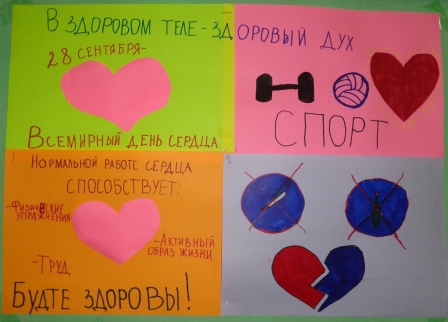 В ЗДОРОВОМ ТЕЛЕ - ЗДОРОВЫЙ ДУХ
28 СЕНТЯБРЯ-
ВСЕМИРНЫЙ ДЕНЬ СЕРДЦА.
СПОРТ
НОРМАЛЬНОЙ РАБОТЕ СЕРДЦА
СПОСОБСТВУЕТ:
-ФИЗИЧЕСКИЕ
УПРАЖНЕНИЯ
-АКТИВНЫЙ
ОБРАЗ ЖИЗНИ
-ТРУД
БУДТЕ ЗДОРОВЫ!